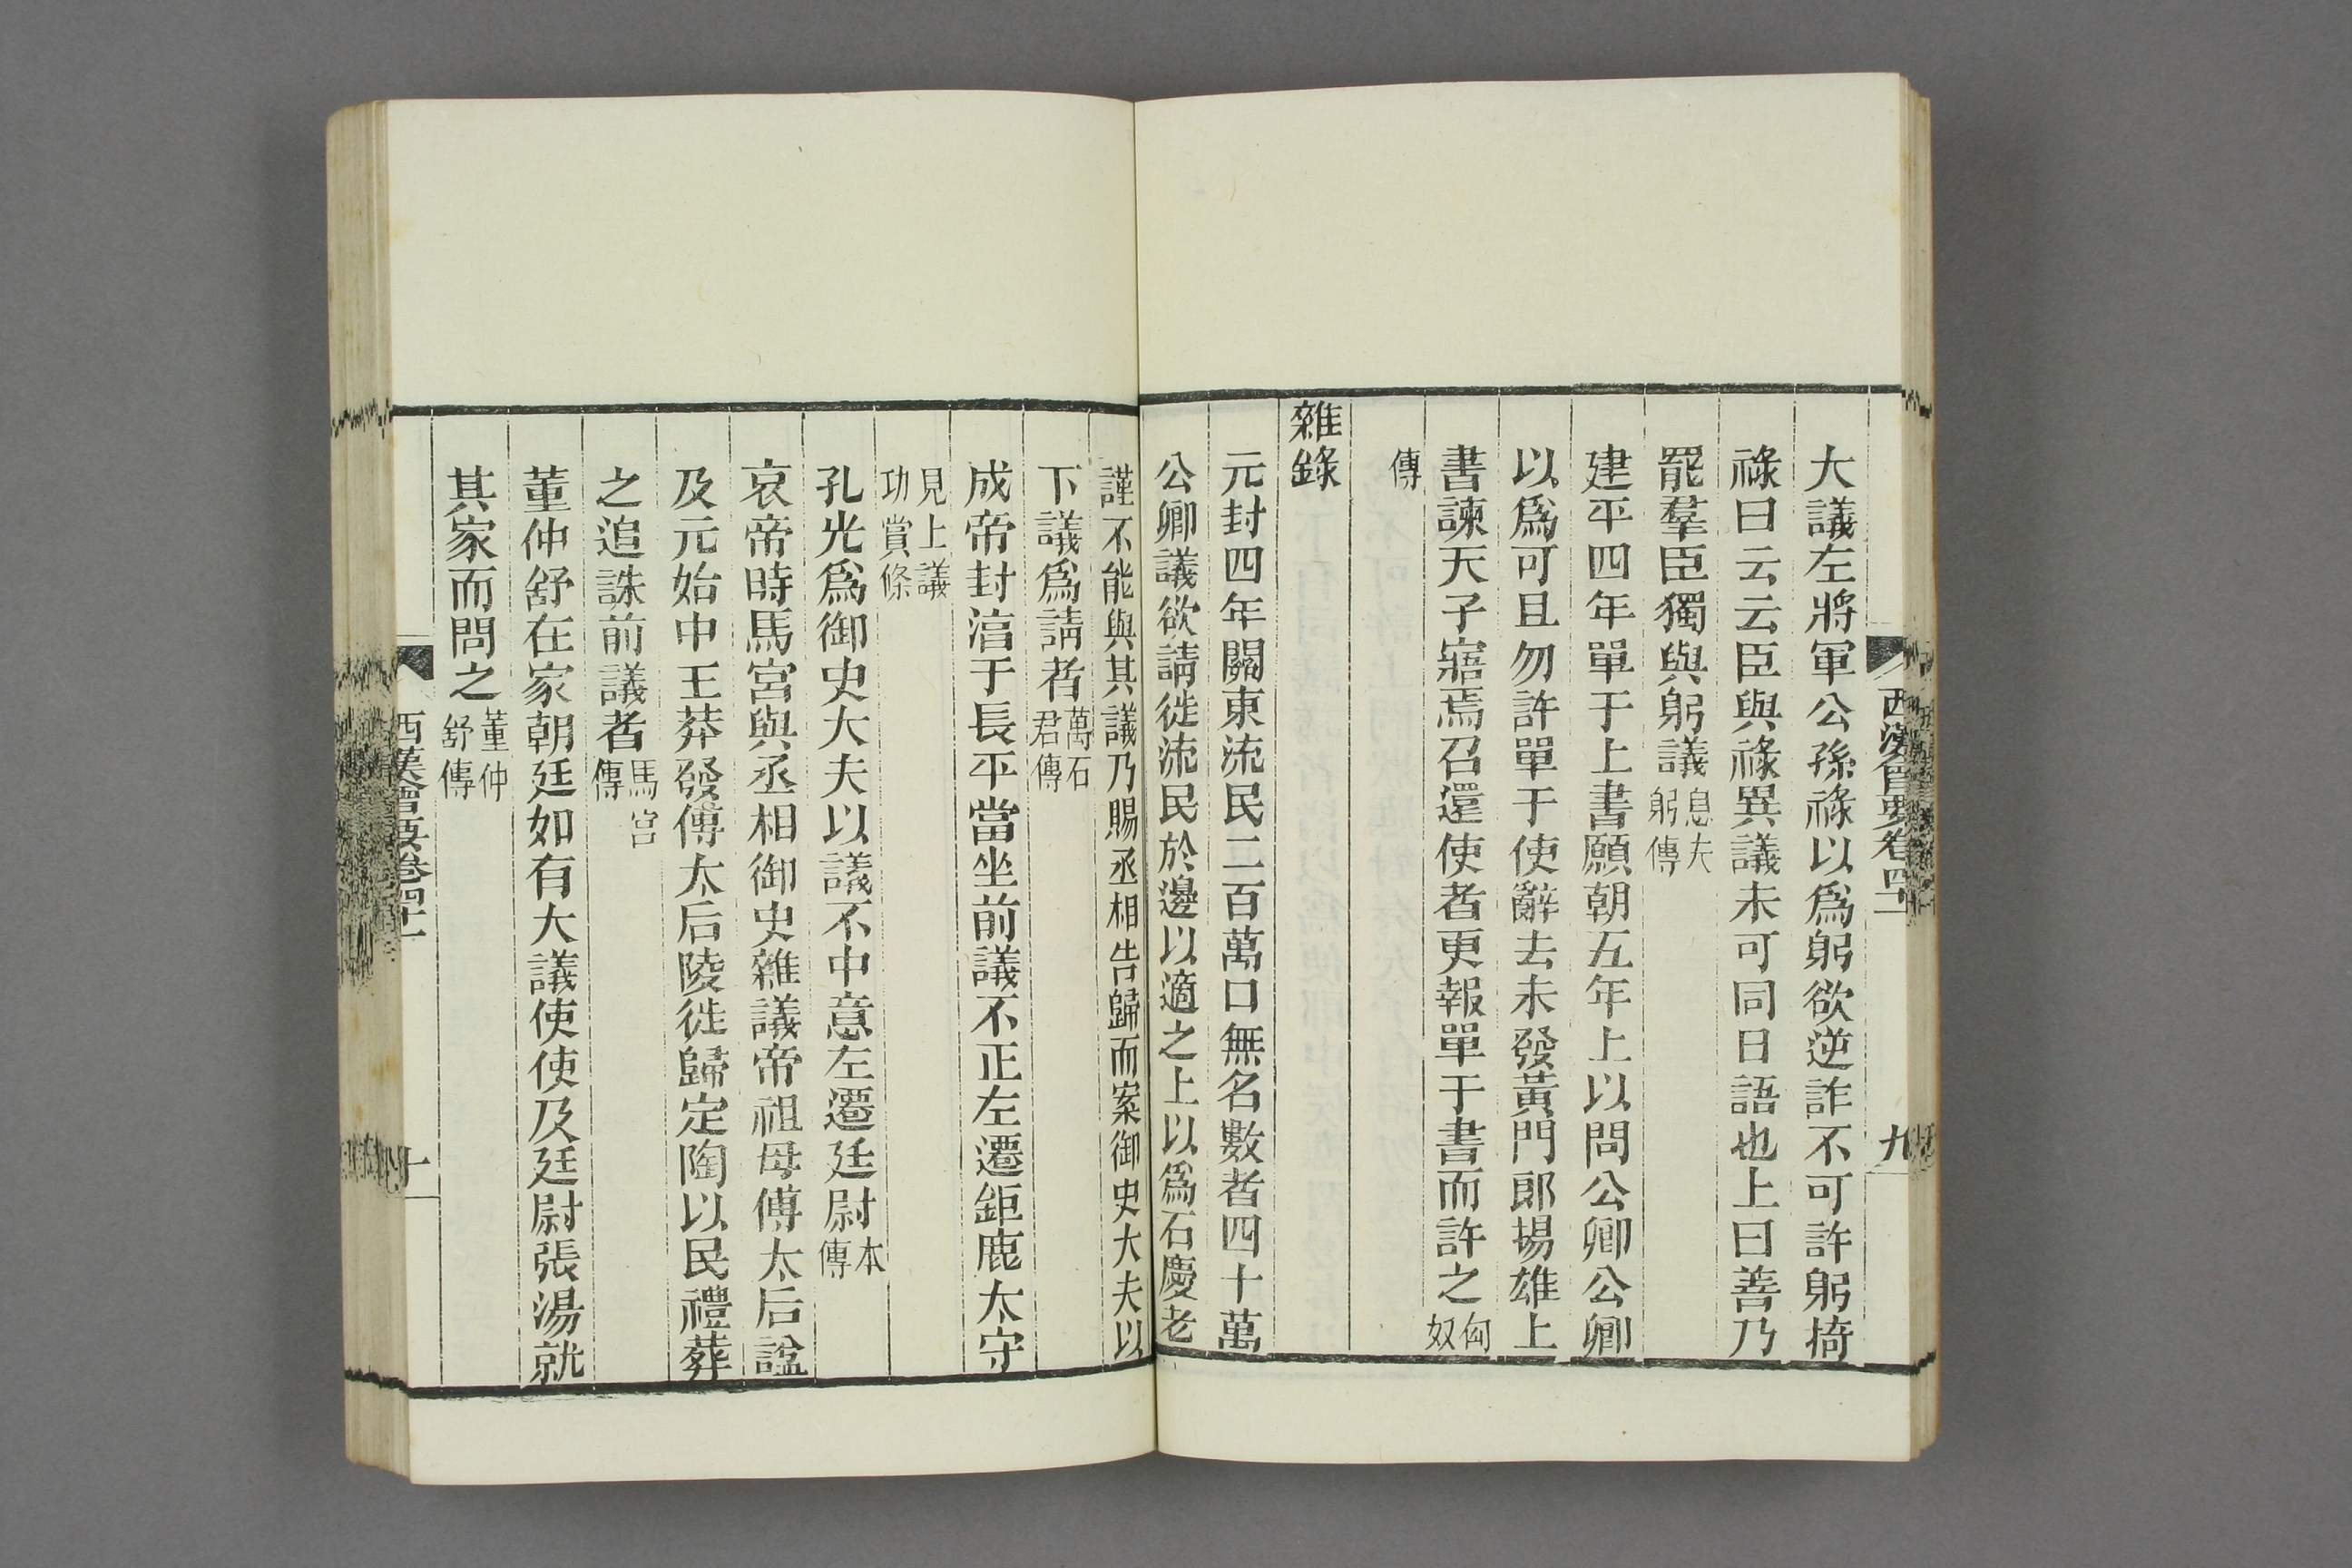 西漢會要卷四十一
九
大議左將軍公孫祿以爲躬欲逆詐不可許躬掎
祿曰云云臣與祿異議未可同日語也上曰善乃
罷羣臣獨與躬議息夫躬傳
建平四年單于上書願朝五年上以問公卿公卿
以爲可且勿許單于使辭去未發黃門郞揚雄上
書諫天子寤焉召還使者更報單于書而許之匈奴
傳
雜錄
元封四年關東流民二百萬口無名數者四十萬
公卿議欲請徙流民於邊以適之上以爲石慶老
謹不能與其議乃賜丞相告歸而案御史大夫以
下議爲請者萬石君傳
成帝封淳于長平當坐前議不正左遷鉅鹿太守
見上議功賞條
孔光爲御史大夫以議不中意左遷廷尉本傳
哀帝時馬宮與丞相御史雜議帝祖母傅太后諡
及元始中王莽發傅太后陵徙歸定陶以民禮葬
之追誅前議者馬宮傳
董仲舒在家朝廷如有大議使使及廷尉張湯就
其家而問之董仲舒傳
西漢會要卷四十一
十